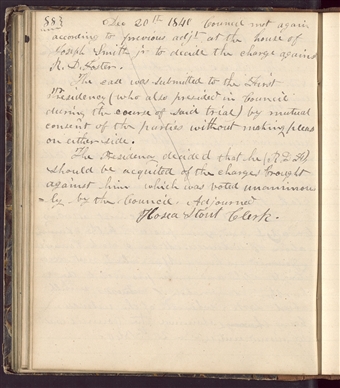 88½ Dec 20th 1840 Council met again
according to previous adjt at the house of
Joseph Smith jr to decide the charge against
R. D. Foster.
The case was submitted to the First
Presidency (who also presided in Council
during the course of said trial) by mutual
consent of the parties without making pleas
on either side.
The Presidency decided that he (R. D. F)
should be acquited of the charges brought
against him which was voted unanimous
ly by the Council. Adjourned
Hosea Stout Clerk.